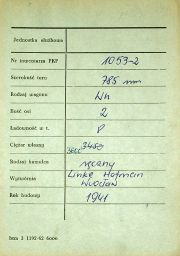 Jednostka służbowa
Nr inwentarza PKP 1053-2
Szerokość toru 785 mm
Rodzaj wagonu Wh
Ilość osi 2
Ładowność w t. P
Ciężar własny 3600 3450
Rodzaj hamulca ręczny
Wytwórnia Linke Hofman
Wrocław
Rok budowy 1941